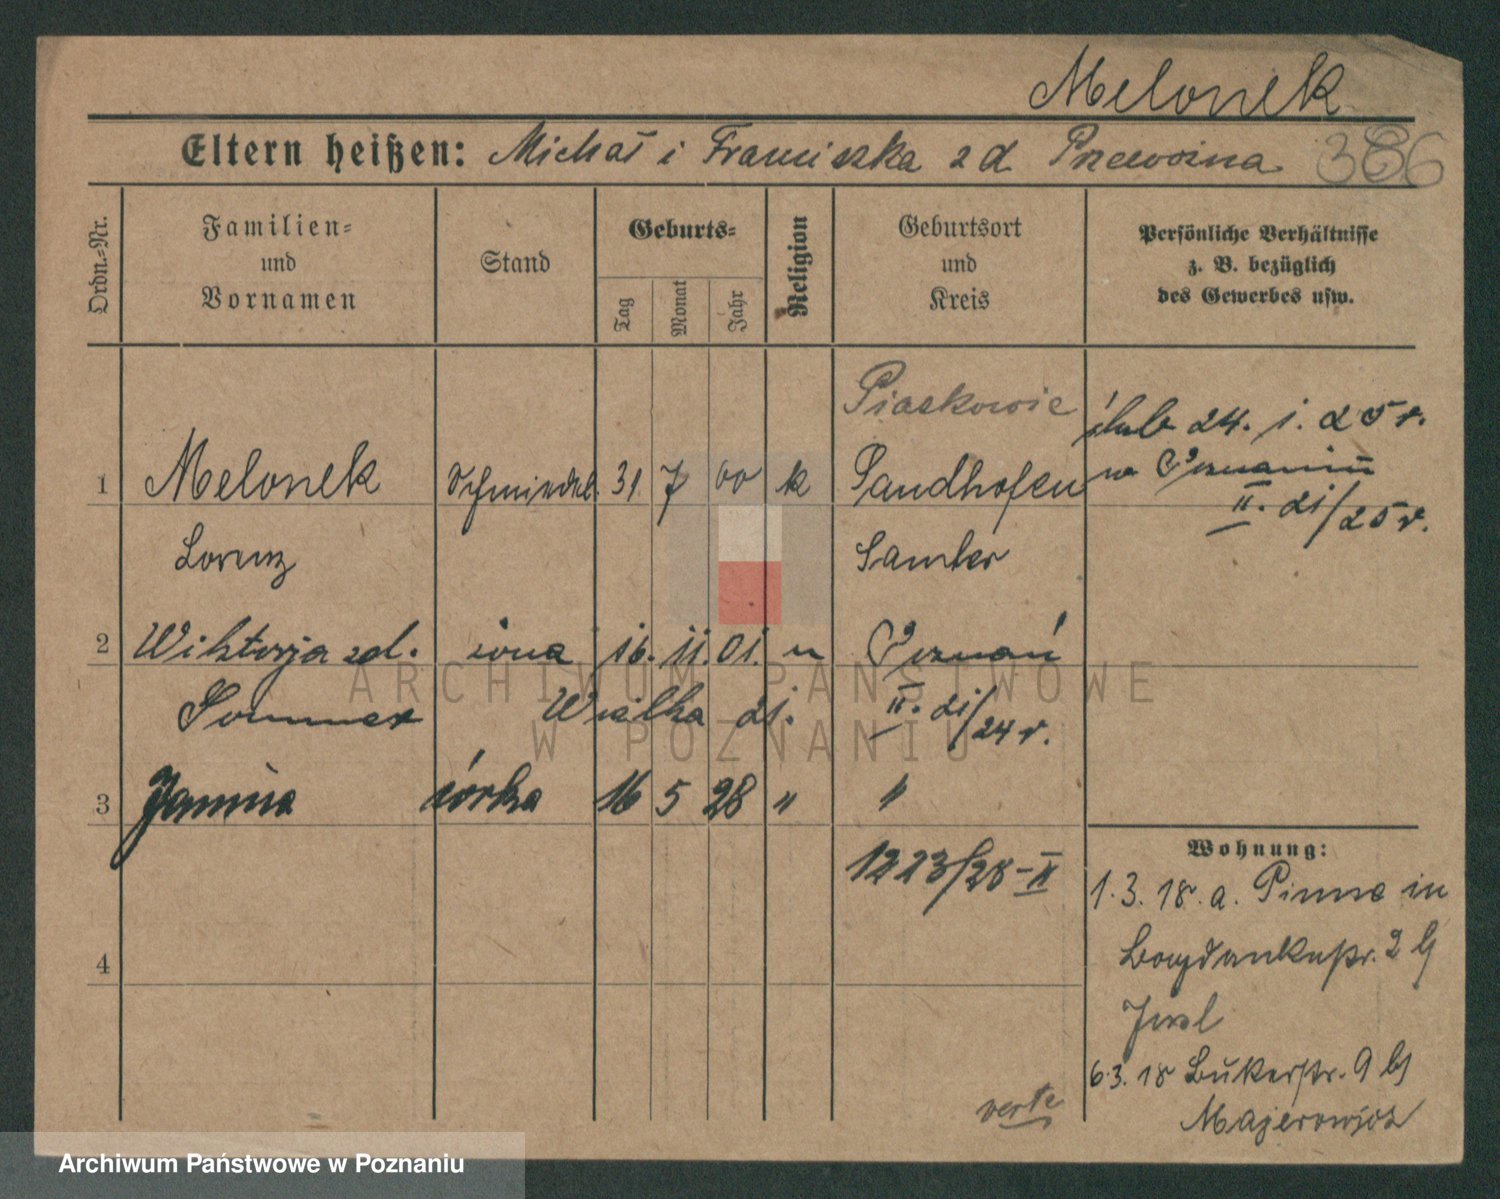 Melonek
Eltern heißen: Michał i Franciszka zd
386
Ordn.-Nr.
Familien-
und
Vornamen
Stand
Geburts-
Tag
Monat
Jahr
Religion
Geburtsort
und
Kreis
Persönliche Verhältnisse
z. B. bezüglich
des Gewerbes usw.
Piaskowie
ślub 24. 1. 25 r.
1 Melonek Schmiedel. 31 7 00 k Sandhofen
w Poznaniu
II. 21/25 r.
Lorenz Samter
2 Wiktorja zd. żona 16. 11. 01. " Poznań
Sommer Wielka 21. II. 21/24 r.
3 Janina córka 16 5 28 " "
1223/28-II
4
Wohnung:
1. 3. 18. a. Pinne in
Bogdankastr. 2 b/
6.3.18 Bukerstr. 9 b/
Majerowicz
verte
ARCHIWUM PAŃSTWOWE
W POZNANIU
Archiwum Państwowe w Poznaniu